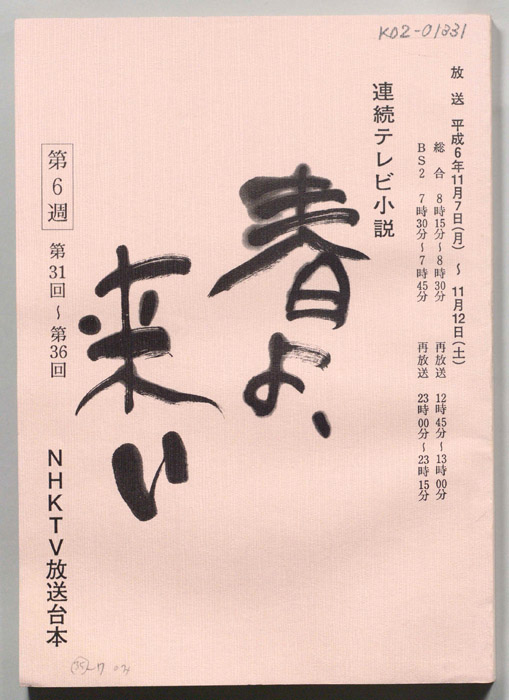 KD2-01331
放送 平成6年11月7日(月) ~ 11月12日(土)
総合 8時15分~8時30分 再放送 12時45分~13時00分
BS2 7時30分~7時45分 再放送 23時00分~23時15分
連続テレビ小説
春よ、
来い
第6週 第31回~第36回
NHKTV放送台本